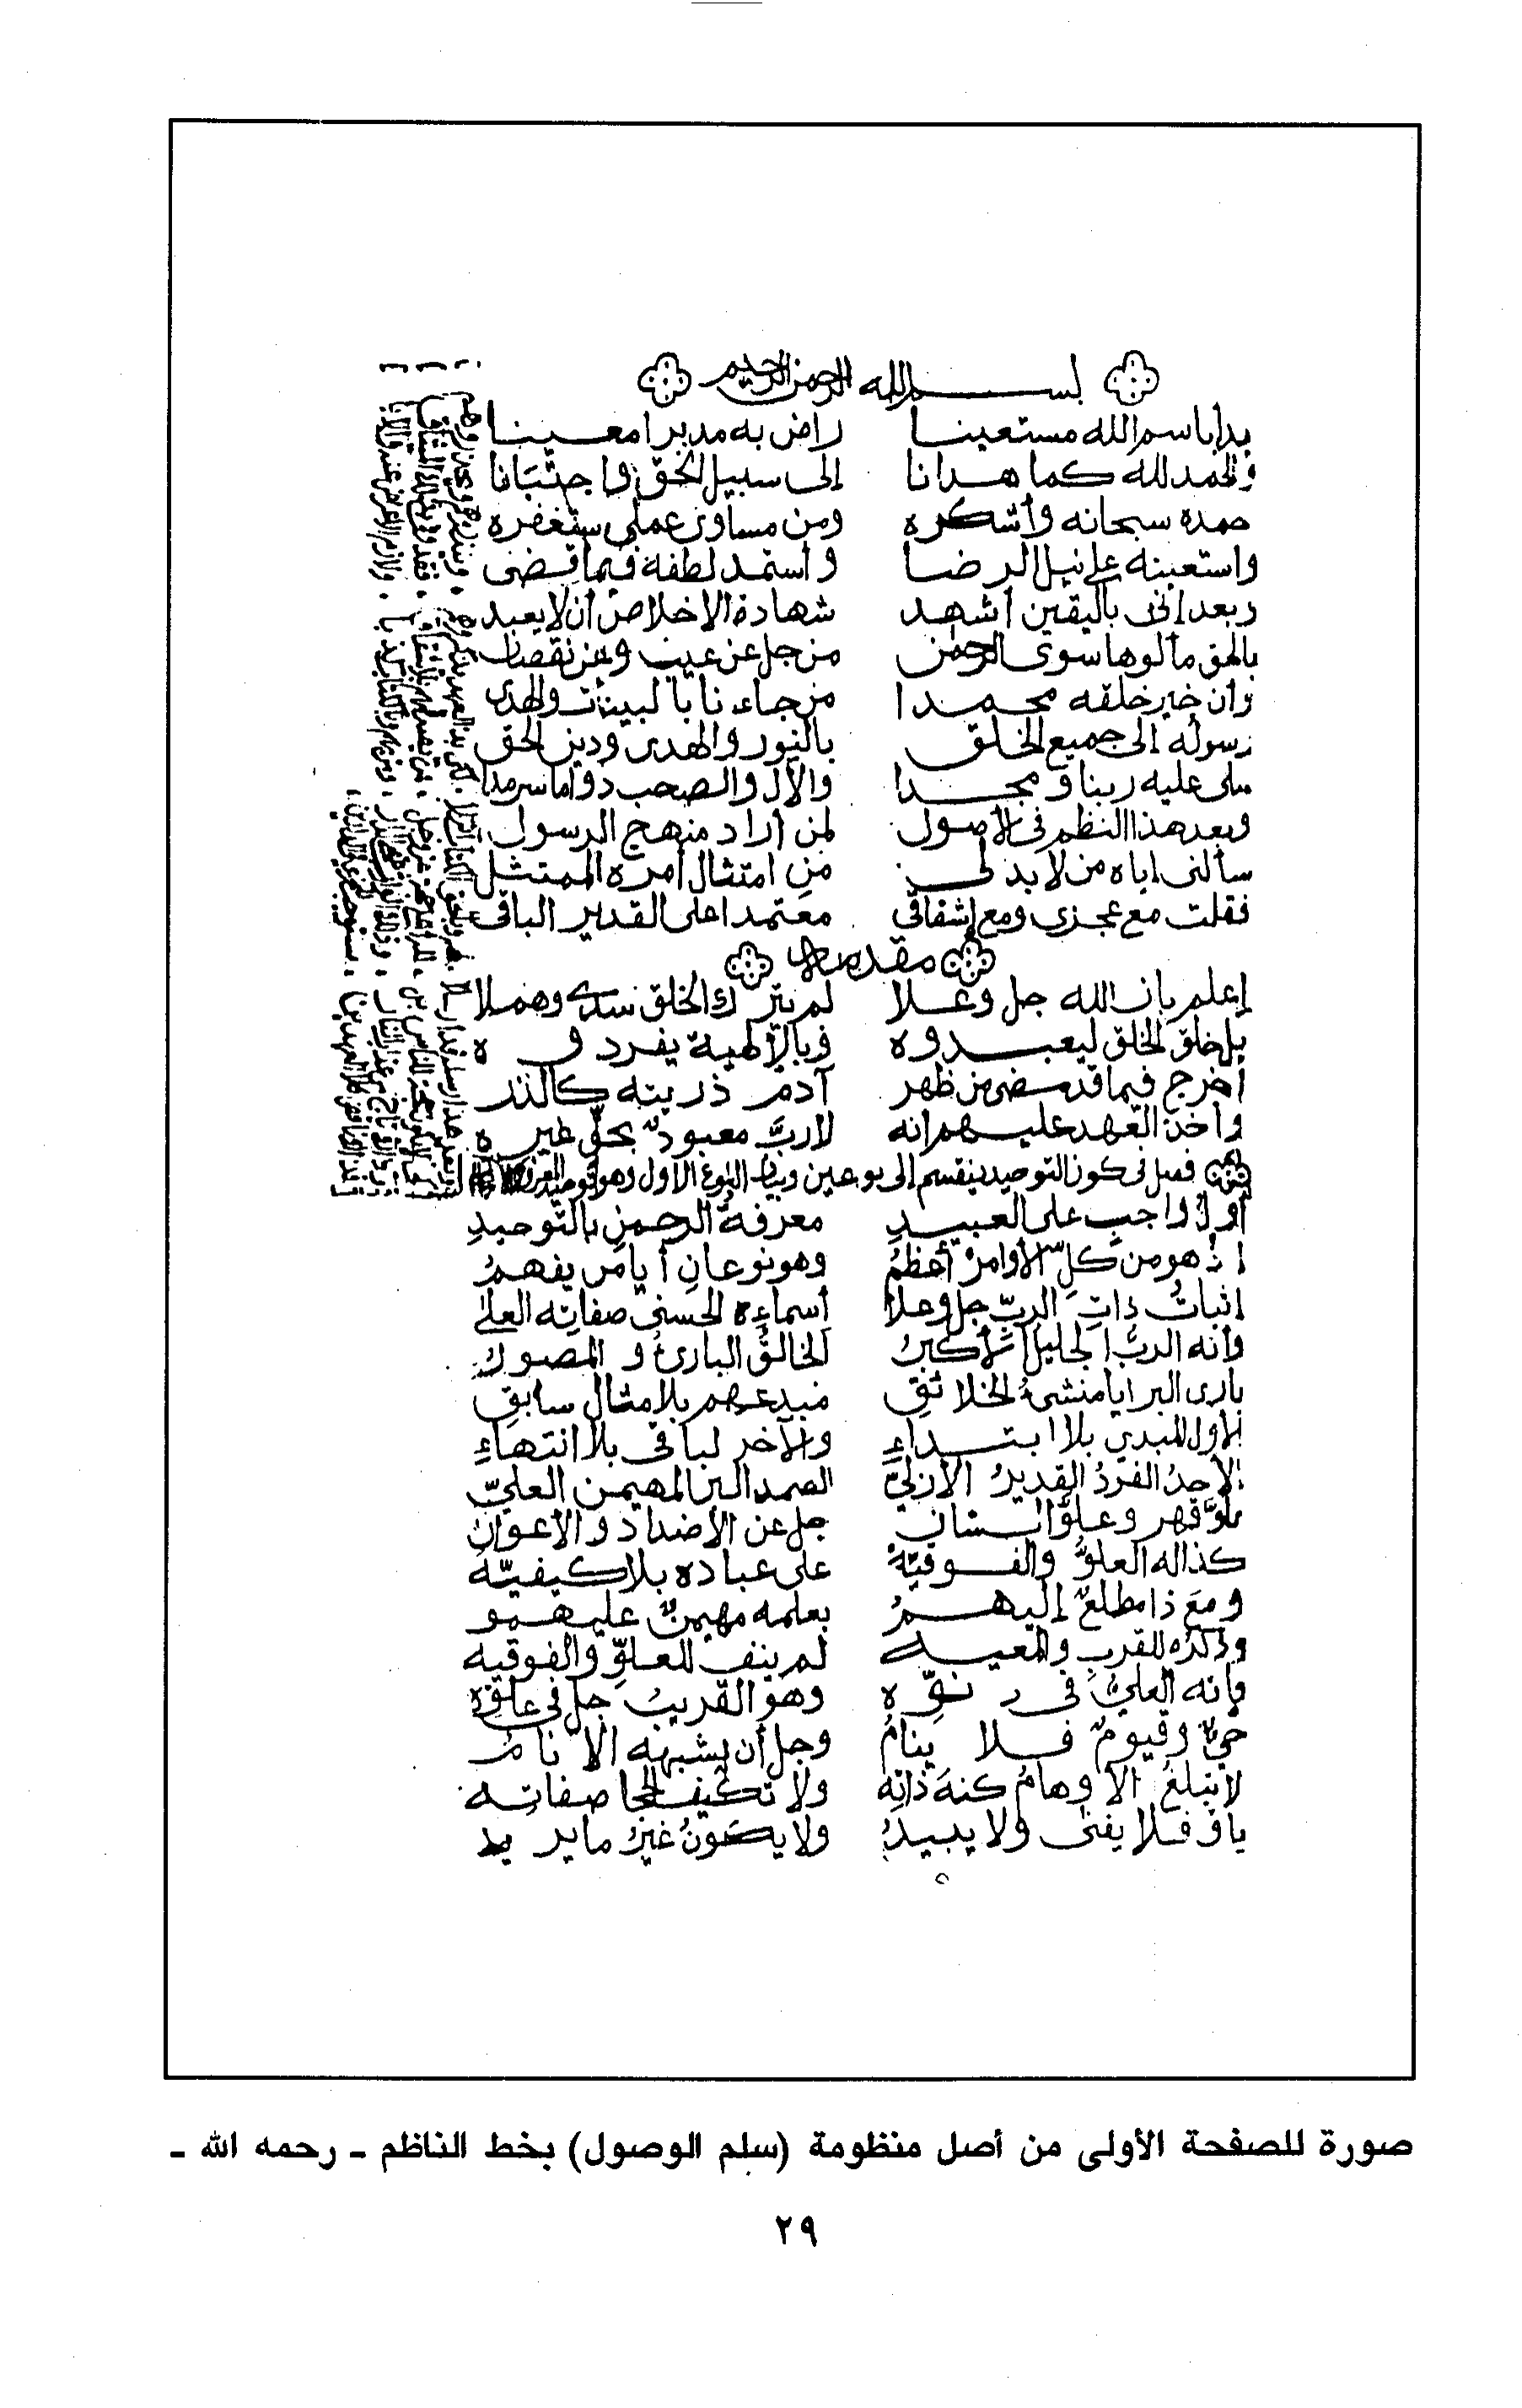 بسم الله الرحمن الرحيم
أبدأ باسم الله مستعينا راض به مدبرا معينا
والحمد لله كما هدانا إلى سبيل الحق واجتبانا
أحمده سبحانه وأشكره ومن مساوي عملي ستغفره
واستعينه على نيل الرضا وأستمد لطفه فيما قضى
وبعد إني باليقين أشهد شهادة الإخلاص أن لا يعبد
بالحق مألوها سوى الرحمن من جل عن عيب وعن نقصان
وأن خير خلقه محمدا من جاءنا بالبينات والهدى
رسوله الى جميع الخلق بالنور والهدى ودين الحق
صلى عليه ربنا ومجدا والآل والصحب دواما سرمدا
وبعد هذا النظم في الأصول لمن أراد منهج الرسول
سألني اياه من لا بد لي من امتثال أمره الممتثل
فقلت مع عجزي ومع إشفاقي معتمدا على القدير الباقي
مقدمة
إعلم بأن الله جل وعلا لم يترك الخلق سدى وهملا
بل خلق الخلق ليعبدوه وبالإلهية يفردوه
أخرج فيما قد مضى من ظهر آدم ذريته كالذر
وأخذ العهد عليهم انه لا ربَّ معبودٌ بحقٍّ غيره
فصل في كون التوحيد ينقسم إلى نوعين وبيان النوع الاول وهو توحيد
أول واجب على العبيدِ معرفةُ الرحمنِ بالتوحيدِ
إذ هو من كلِّ الأوامر أعظمُ وهو نوعانِ أيا من يفهمُ
اثباتُ ذاتِ الربِّ جل وعلا أسماءِه الحسنى صفاتِه العلى
وأنه الربُّ الجليل الأكبرُ الخالقُ البارئُ والمصورُ
بارى البرايا منشئُ الخلائقِ مبدعهم بلا مثال سابقِ
الأول المبدي بلا ابتداءِ والآخر لباقي بلا انتهاءِ
الأحدُ الفردُ القديرُ الأزليّ الصمد البر المهيمن العليّ
علوَّ قهر وعلوَّ الشان جل عن الأضداد والأعوان
كذا له العلوُّ والفوقيّهْ على عباده بلا كيفيّهْ
ومعَ ذا مطلعٌ إليهمُ بعلمه مهيمنٌ عليهمو
وذكره للقربِ والمعيه لم ينف للعلوِّ والفوقيه
فإنه العليُّ في دنوّه وهو القريبُ جل في علوّه
حيٌّ وقيومٌ فلا ينامُ وجل أن يشبهه الأنامُ
لا تبلغُ الأوهامُ كنهَ ذاتِه ولا تكيف الحجا صفاتِه
باق فلا يفنى ولا يبيدُ ولا يكونُ غيرُ ما يريد
صورة للصفحة الأولى من أصل منظومة (سلم الوصول) بخط الناظم ـ رحمه الله ـ
٢٩